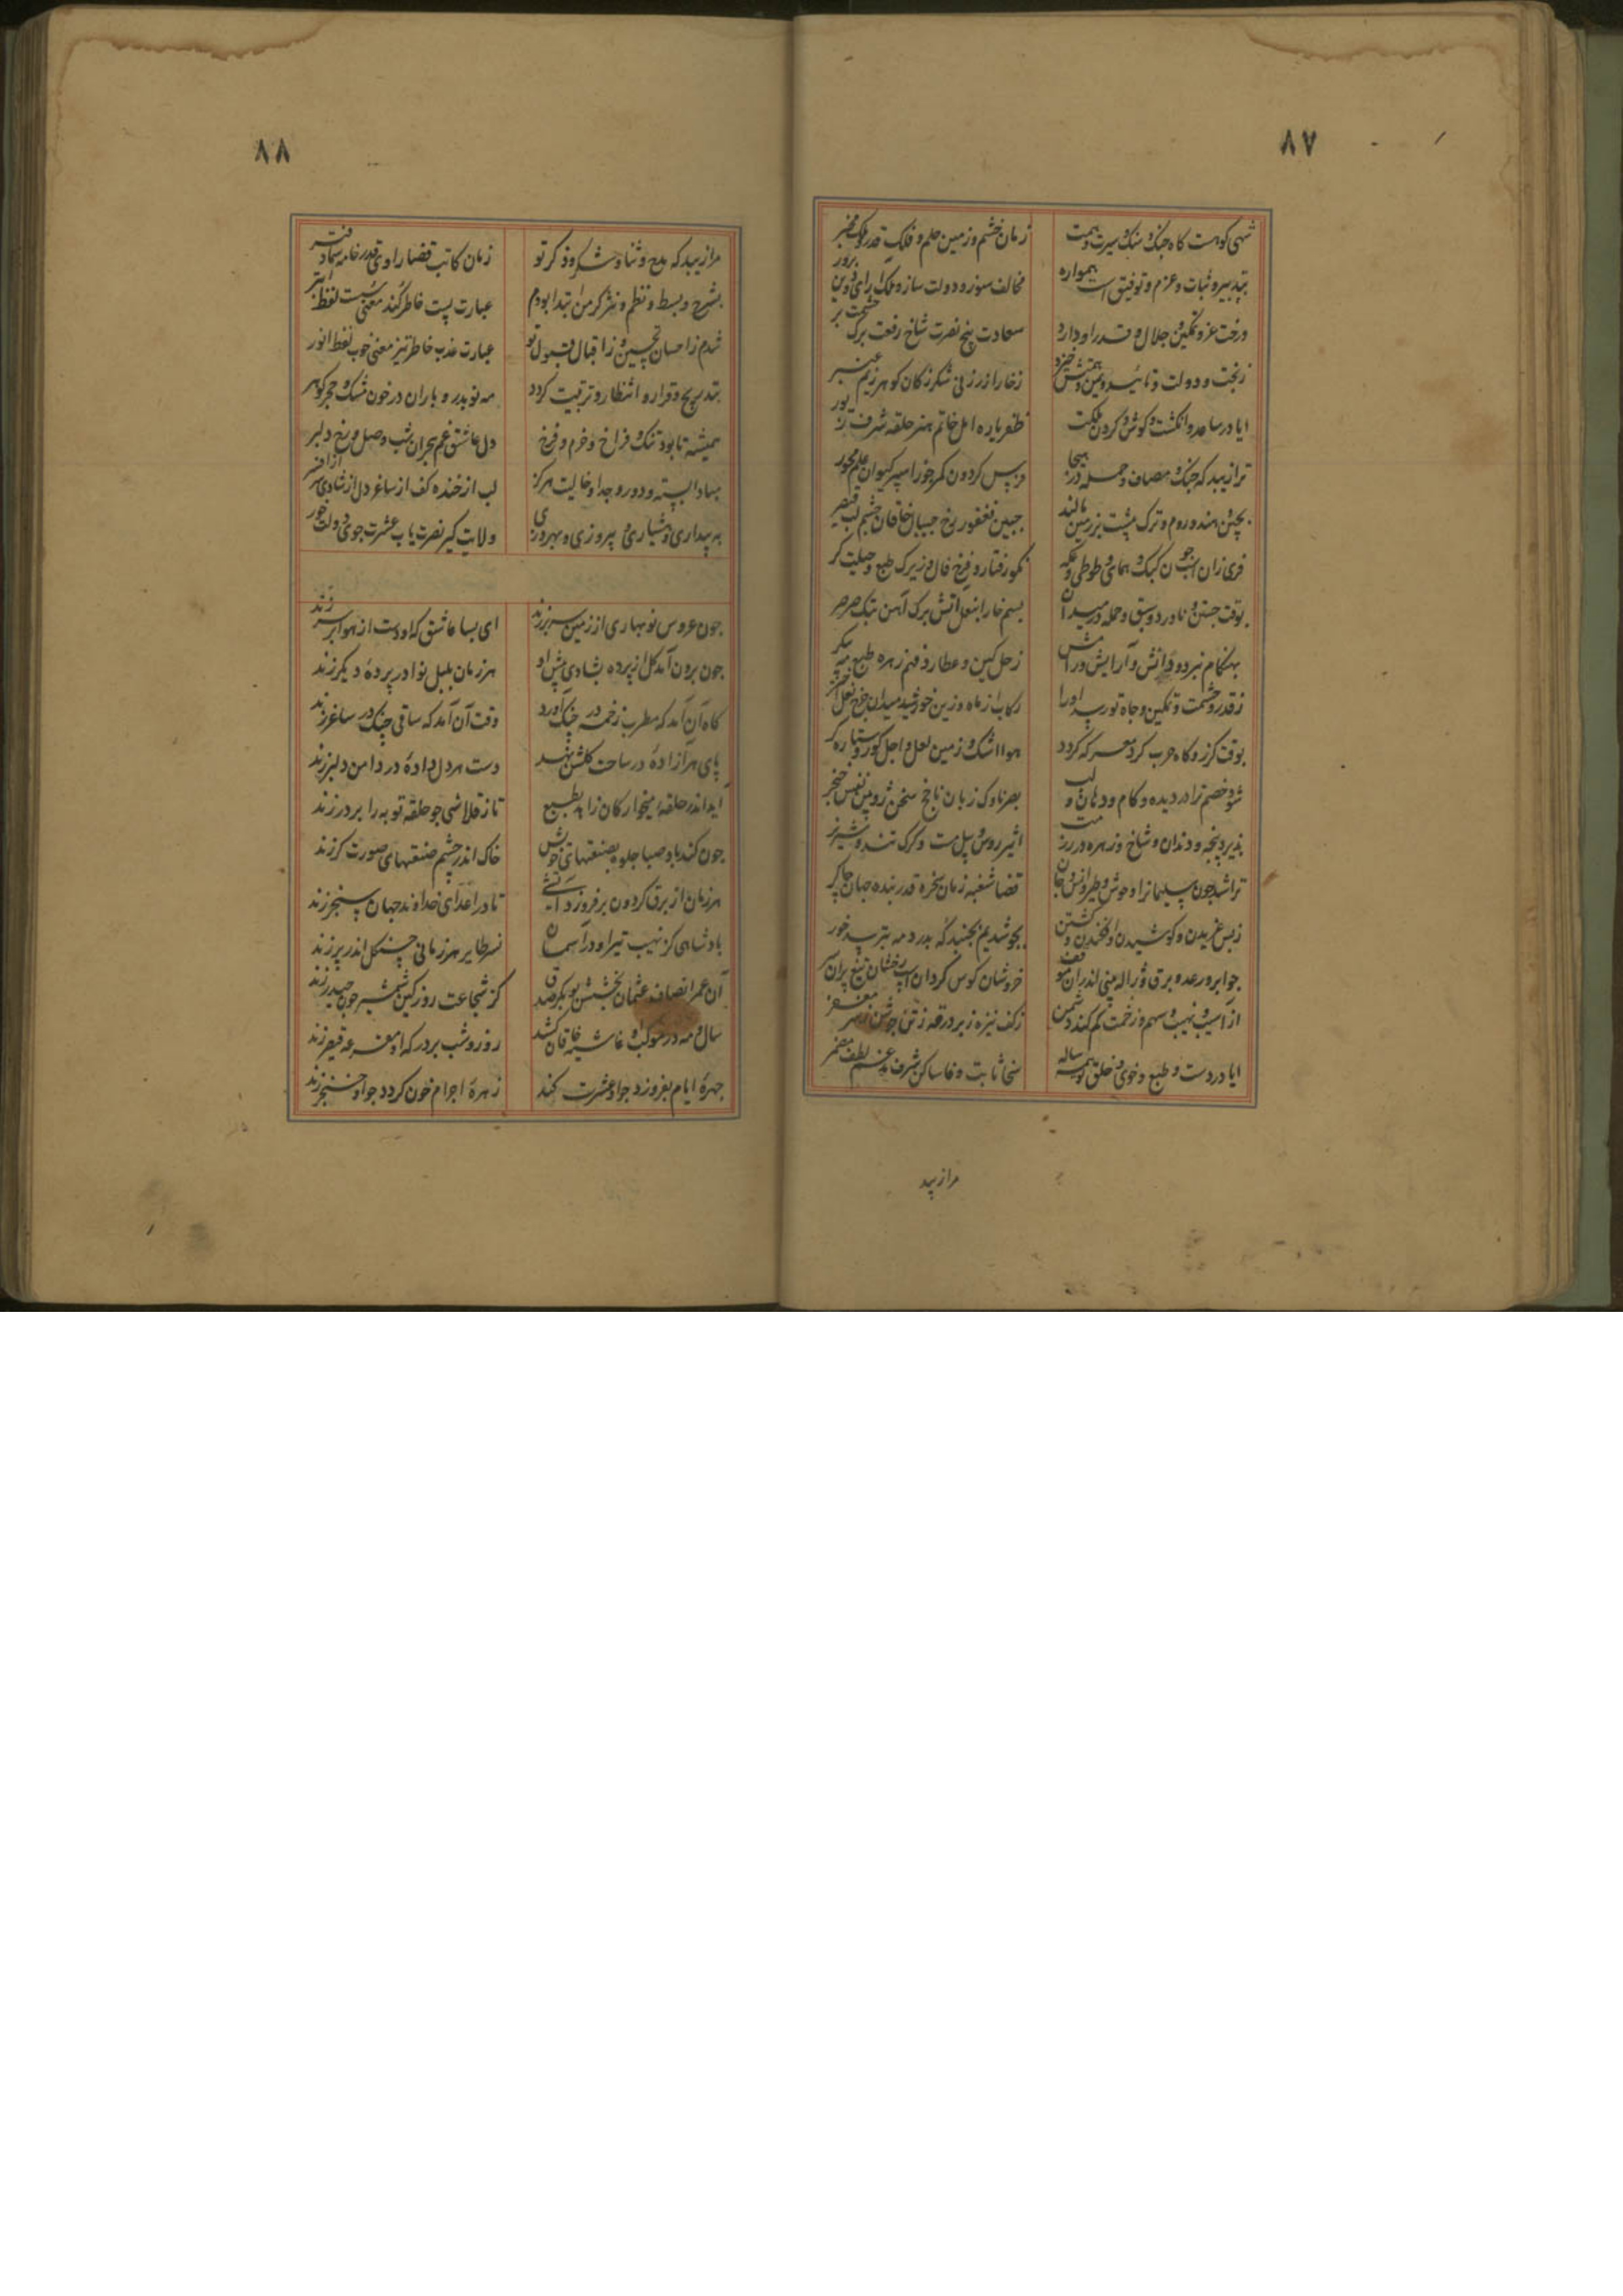 ٨٧
شهی کوهست کاه جنک و سنک و سیرت و همت زمان خشم و زمین حلم و فلک قدر و ملک مخبر
بتدبیر و ثبات و عزم و توفیق است همواره مخالف سوز و دولت ساز و ملک ارای و دین پرور
درخت عز و تمکین و جلال و قدر او دارد سعادت بیخ نصرت شاخ رفعت برک حشمت بر
زبخت و دولت و تائید و یمن و همتش خیزد زخار ازر زنی شکر زکان کوهر زیم عنبر
ایا در ساعد و انکشت و کوش و کردن ملکت ظفر یاره امل خاتم هنر حلقه شرف زیور
ترا زیبد که جنک و مصاف و حمله در هیجا فرس کردون کمر جوزا سپر کیوان علم محور
بچین و هند و روم و ترک پشت بر زمین مالند جبین فغفور رخ جیپال خاقان چشم لب قیصر
فری زان اسب جون کبک و همای و طوطی و عکه نکو رفتار و فرخ فال و زیرک طبع و حیلت کر
بوقت جستن و ناورد و سبق و حمله در میدان بسم خارا بنعل آتش برک آهن بتک صرصر
بهنکام نبرد و دانش و آرایش و رامش زحل کین و عطارد فهم زهره طبع مه پیکر
زقدر و حشمت و تمکین و جاه تو رسد او را رکاب از ماه و زین خورشید میدان چرخ نعل اختر
بوقت کرز و کاه حرب کرد معرکه کردد هوا اشک و زمین لعل و اجل کور و ستاره کر
شود خصم ترا در دیده و کام و دهان و لب بصر ناوک زبان ناچخ سخن زوبین نفس خنجر
پذیرد پنجه و دندان و شاخ و زهره در رزمت
ترا شد جون سلیمانرا وحوش و طیر و انس و جان قضا شغبه زمان سخره قدر بنده جهان چاکر
زبس غریدن و کوشیدن و افکندن و کشتن بجوشد یم بجنبد که بدرد مه بترسد خور
جو ابر و رعد و برق و ژاله بینی اندران موقف خروشان کوس کردان اسب رخشان تیغ پران
از آسیب و نهیب و سهم و زخمت کم کند دشمن زکف نیزه زبر درقه زتن جوشن زسر مغفر
ایا در دست و طبع و خوی و خلق تو همه ساله سخا ثابت وفا ساکن شرف مدغم لطف مضمر
مرا زیبد
٨٨
مرا زیبد که مدح و ثنا و شکر و ذکر تو زمان کاتب قضا راوی قدر خامه سما دفتر
بشرح و بسط و نظم و نثر کر من ابتدا بودم عبارت پست خاطر کند معنی سست لفظ ابتر
شدم ز احسان و تحسین و ز اقبال و قبول تو عبارت عذب خاطر تیز معنی خوب لفظ انور
بتدریج و قرار و انتظار و تربیت کردد مه نو بدر و باران در خون مشک و حجر کوهر
همیشه تا بود تنک و فراخ و خرم و فرخ دل عاشق غم هجران شب وصل و رخ دلبر
مبادا بسته و دور و جدا و خالیت هرکز لب از خنده کف از ساغر دل از شادی سر از افسر
به بیداری و هشیاری و پیروزی و بهروزی ولایت کیر نصرت یاب عشرت جوی دولت خور
جون عروس نوبهاری از زمین سر برزند ای بسا عاشق که او دست از هوا بر سر زند
جون برون آمد کل از پرده بشادی پیش او هر زمان بلبل نوا در پردهٔ دیکر زند
کاه آن آمد که مطرب زخمه در چنک آورد وقت آن آمد که ساقی چنک در ساغر زند
پای هر آزادهٔ در ساحت کلشن نهد دست هر دل دادهٔ در دامن دلبر زند
آید اندر حلقه میخوارکان زاهد بطبع تا ز قلاشی جو حلقه توبه را بر در زند
جون کند باد صبا جلوه بصنعتهای خویش خاک اندر چشم صنعتهای صورت کر زند
هر زمان از برق کردون برفروزد آتشی تا در اعدای خداوند جهان سنجر زند
پادشاهی کز نهیب تیر او در آسمان نسر طایر هر زمانی چنکل اندر پر زند
آن عمر انصاف عثمان بخشش بوبکر صدق کز شجاعت روز کین شمشیر جون حیدر زند
سال و مه در موکب او غاشیه خاقان کشد روز و شب بر درکه او مقرعه قیصر زند
جهرهٔ ایام بفروزد جو او عشرت کند زهرهٔ اجرام خون کردد جو او خنجر زند